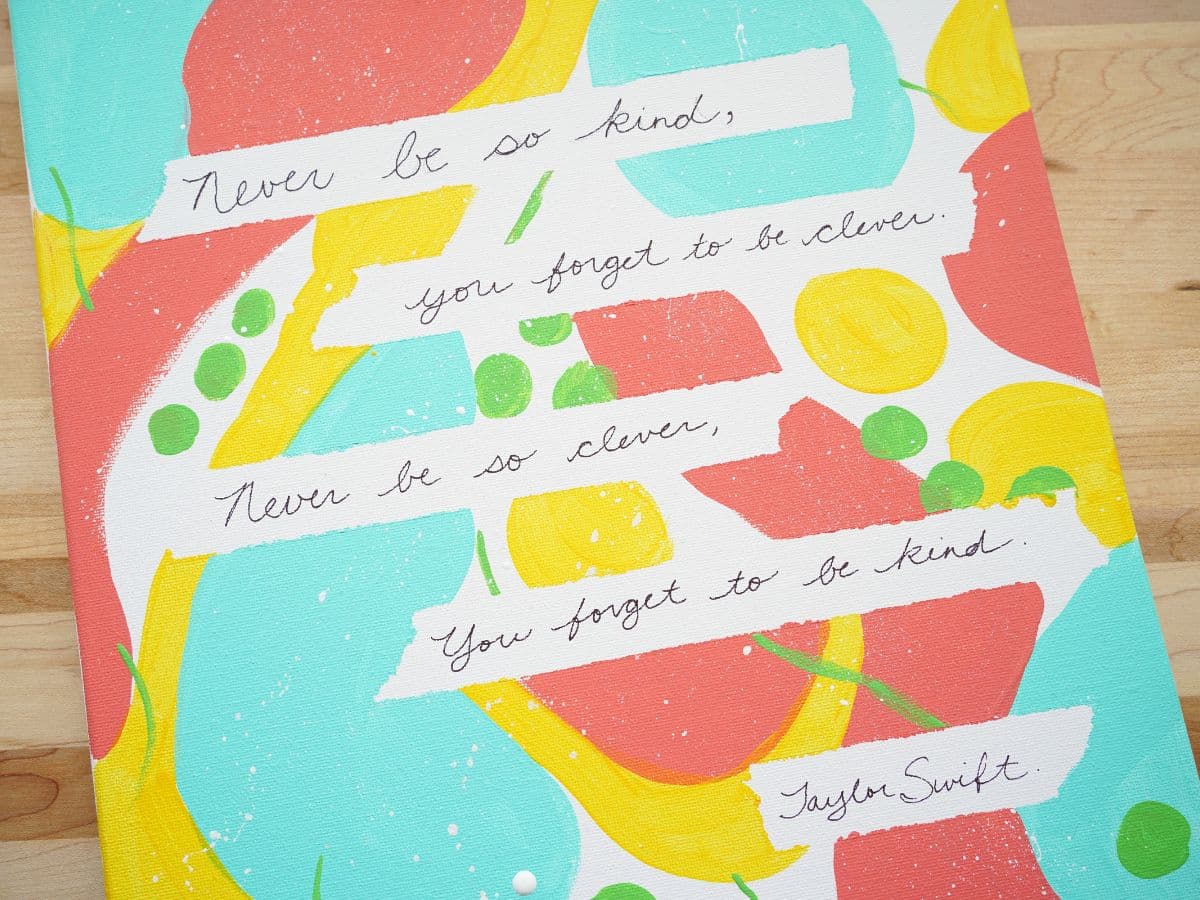 Never be so kind,
you forget to be clever.
Never be so clever,
You forget to be kind.
Taylor Swift.